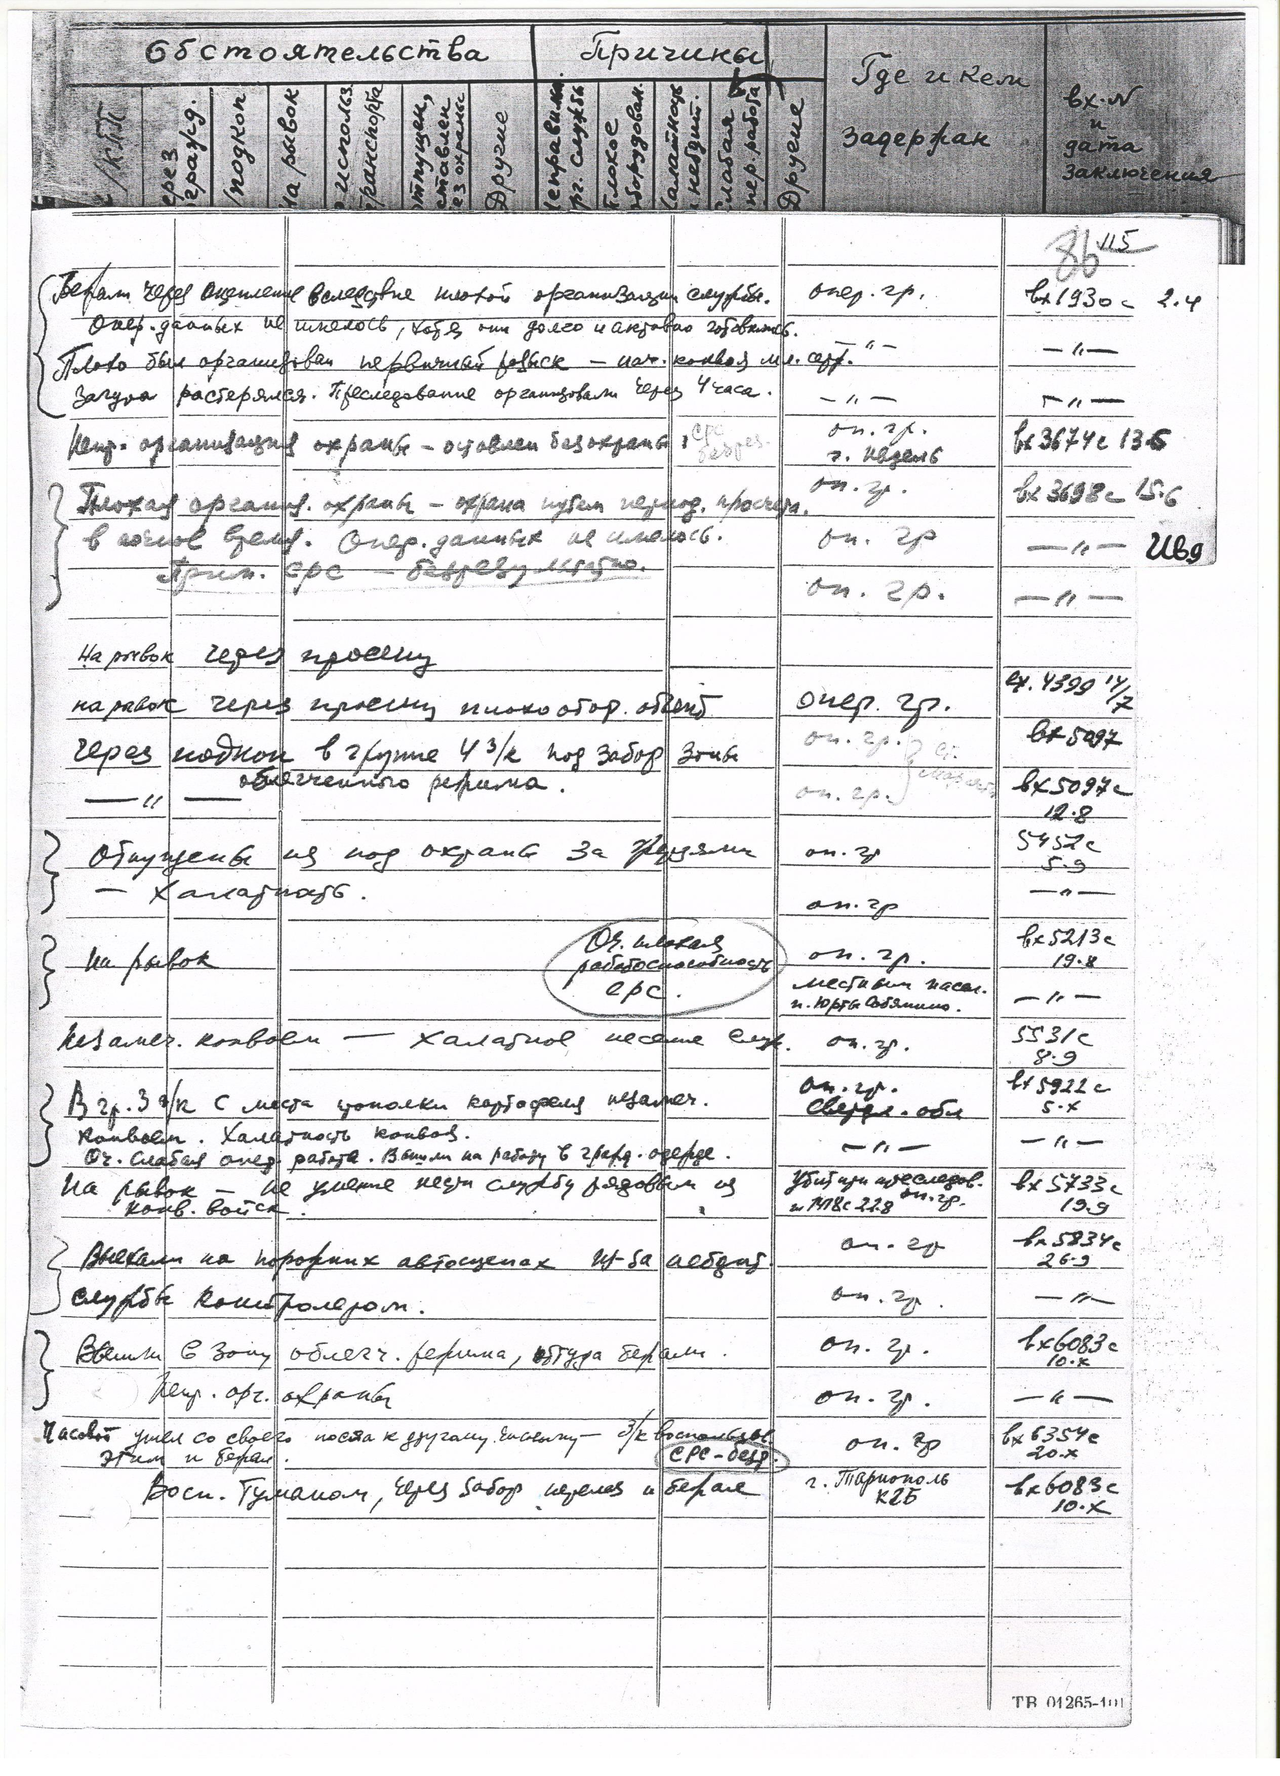 Обстоятельства Причины Где и кем задержан вх.N и дата заключения
/КПП
через заград.
подкоп
На рывок
с использ. транспорта
отпущен, оставлен без охраны
Другие
Неправильн. орг. службы
Плохое оборудован.
Халатность
Слабая опер. работа
Другие
86 115
Бежали через оцепление вследствие плохой организации службы. опер. гр. вх 1930с 2.4
Опер. данных не имелось, хотя они долго и активно готовились. —"— —"—
Плохо был организован первичный розыск — нач. конвоя мл. серж.
растерялся. Преследование организовали через 4 часа. —"— —"—
Непр. организация охраны — оставлен без охраны, срс безрез. оп. гр. вх 3674с 13.6
Плохая organиз. охраны — охрана путем период. просчета оп. гр. вх 3698с 15.6
в ночное время. Опер. данных не имелось. оп. гр —"—
Прим. СРС — безрезультатно. оп. гр. —"—
На рывок через просеку
на рывок через просеку плохо обор. объект опер. гр. вх. 4399 14/7
Через подкоп в группе 4 з/к под забор зоны оп. гр. вх 5097
—"— облегченного режима. оп. гр. вх 5097с 12.8
Отпущены из под охраны за оп. гр 5452с 5.9
— Халатность. оп. гр —"—
На рывок Оч. плохая работоспособность СРС. оп. гр. вх 5213с 19.8
местным насел. —"—
Незамеч. конвоем — Халатное несение служ. оп. гр. 5531с 8.9
В гр. 3 з/к с места прополки картофеля незамеч. оп. гр. Свердл. обл вх 5922с 5.X
конвоем. Халатность конвоя. —"— —"—
Оч. слабая опер. работа. Вышли на работу в гражд. одежде.
На рывок — не умение нести службу рядовым из конв. войск. Убит при преследов. оп. гр. вх 5733с 19.9
Выехали на порожних автосцепах из-за небдит. оп. гр вх 5834с 26.9
службы контролером. оп. гр. —"—
Вышли в зону облегч. режима, оттуда бежали. оп. гр. вх 6083с 10.X
Непр. орг. охраны оп. гр. —"—
Часовой ушел со своего поста к другому часовому — з/к воспользов. оп. гр вх 6354с 20.X
этим и бежал. СРС-безр.
Восп. Туманом, через забор перелез и бежал г. Тарнополь КГБ вх 6083с 10.X
ТВ 01265-101